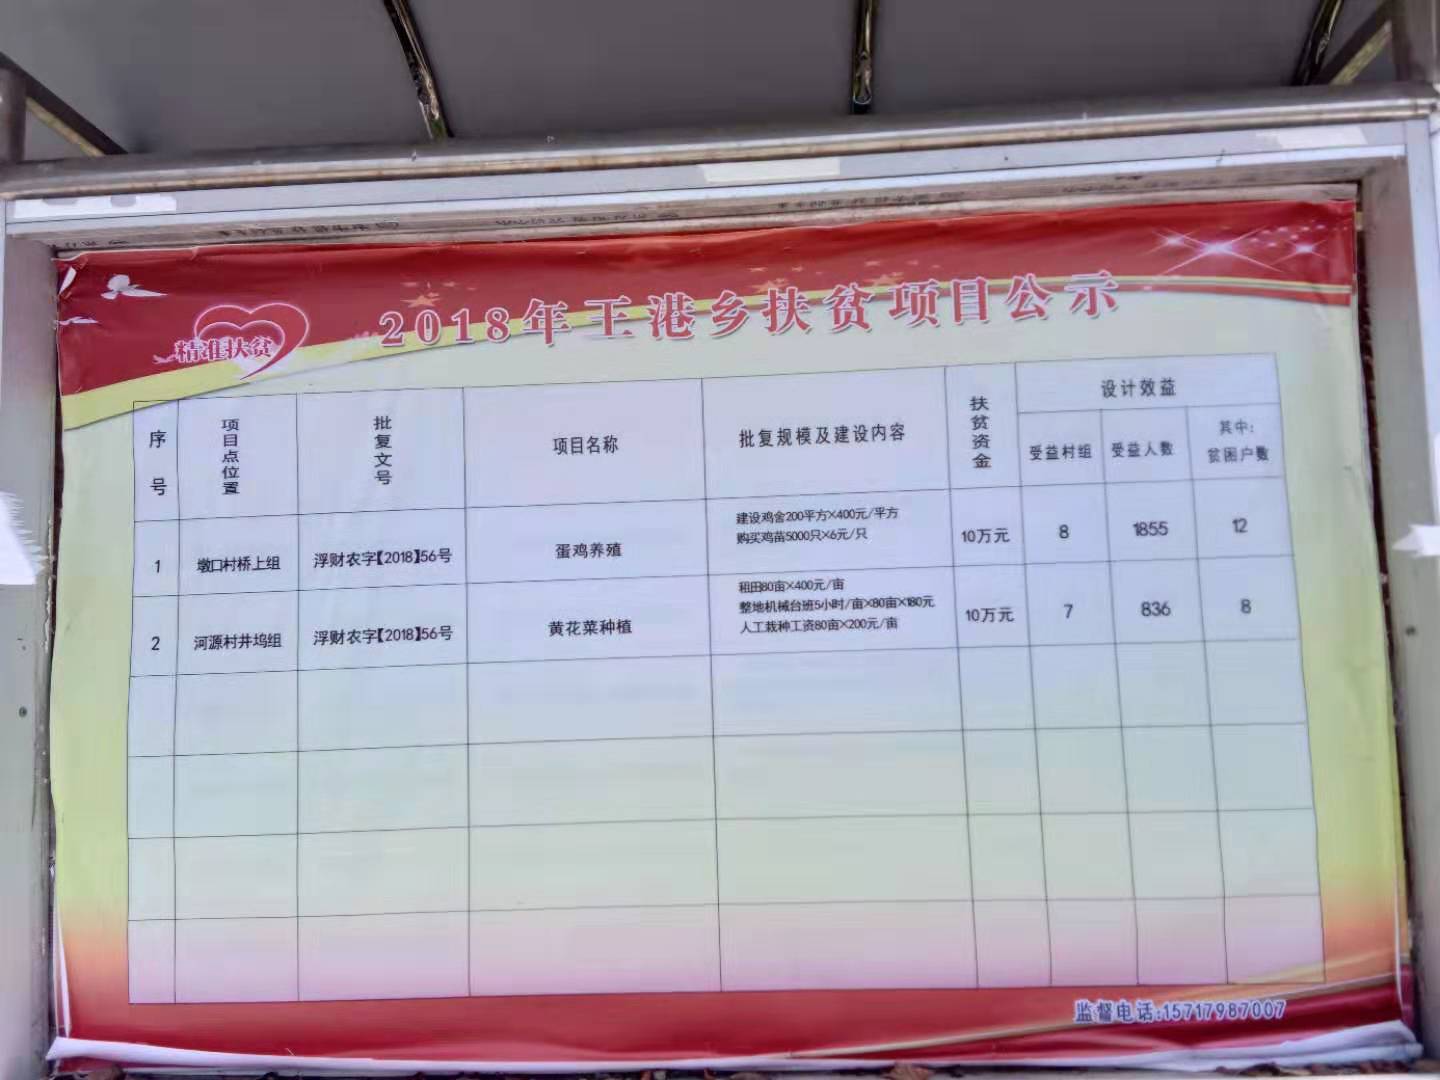 2018年王港乡扶贫项目公示
精准扶贫
序号
项目点位置
批复文号
项目名称
批复规模及建设内容
扶贫资金
设计效益
受益村组
受益人数
其中:
贫困户数
1
墩口村桥上组
浮财农字【2018】56号
蛋鸡养殖
建设鸡舍200平方×400元/平方
购买鸡苗5000只×6元/只
10万元
8
1855
12
2
河源村井坞组
浮财农字【2018】56号
黄花菜种植
租田80亩×400元/亩
整地机械台班5小时/亩×80亩×180元
人工栽种工资80亩×200元/亩
10万元
7
836
8
监督电话:15717987007